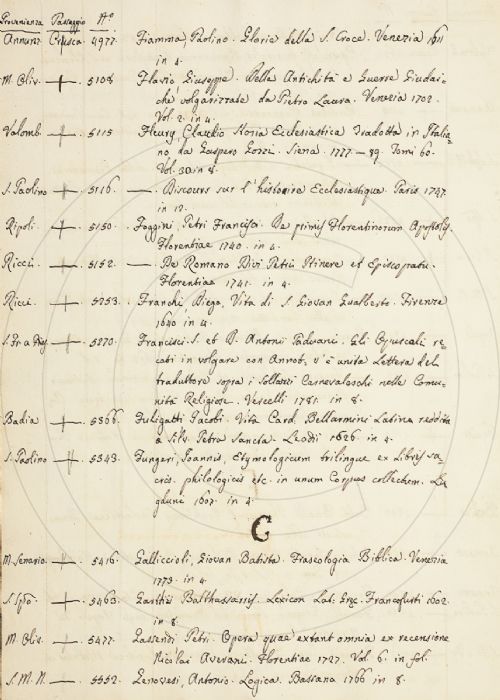 Provenienza Passaggio N.o
Annunz. Crusca. 4977. Fiamma, Paolino. Glorie della S. Croce. Venezia 1611
in 4.
M. Oliv. 5108 Flavio Giuseppe. Delle Antichità e Guerre Giudai-
che volgarizzate da Pietro Laura. Venezia 1702.
Vol. 2. in 4.
Valomb. 5115 Fleury, Claudio Storia Ecclesiastica tradotta in Italia-
no da Gaspero Gozzi. Siena. 1777 — 89. Tomi 60.
Vol. 30 in 8.
S. Paolino 5116. — Discours sur l'histoire Ecclesiastique. Paris 1747
in 12.
Ripoli 5150. Foggini, Petri Francisci. De primis Florentinorum Apostolis.
Florentiae 1740. in 4.
Ricci. 5152. — De Romano Divi Petri Itinere et Episcopatu.
Florentiae 1741. in 4.
Ricci. 5253. Franchi Diego, Vita di S. Giovan Gualberto. Firenze
1640 in 4.
5270. Francisci S. et B. Antonii Paduani. Gli Opuscoli re-
cati in volgare con Annot. v'è unita Lettera del
traduttore sopra i Sollazzi Carnevaleschi nelle Comu-
nità Religiose. Vercelli 1781. in 8.
Badia 5306. Fuligatti Jacobi. Vita Card. Bellarmini Latine reddita
a Silv. Petra Sancta. Leodii 1626 in 4.
S. Paolino 5343. Fungeri, Joannis, Etymologicum trilingue ex Libris sa-
cris. philologicis etc. in unum Corpus collectum. Lu-
gduni 1607. in 4.
G
M. Senario 5416. Galliccioli, Giovan Batista. Fraseologia Biblica. Venezia
1773. in 4.
S. Spo 5463. Garthii Balthassaris. Lexicon Lat. Grec. Francofurti 1602.
in 8.
M. Oliv. 5477. Gassendi Petri. Opera quae extant omnia ex recensione
Nicolai Averani. Florentiae 1727. Vol. 6. in fol.
S. M. N. 5552. Genovesi, Antonio. Logica. Bassano 1766 in 8.